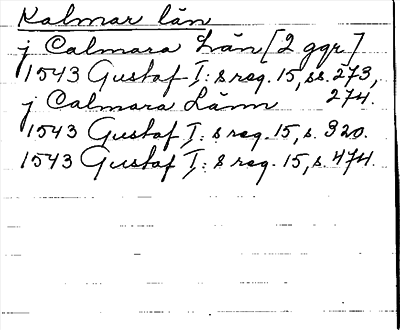 Kalmar län
j Calmara Län [2 ggr.]
1543 Gustaf I:s reg. 15, ss. 273,
274.
j Calmara Länn
1543 Gustaf I:s reg. 15, s. 320.
1543 Gustaf I:s reg. 15, s. 474.